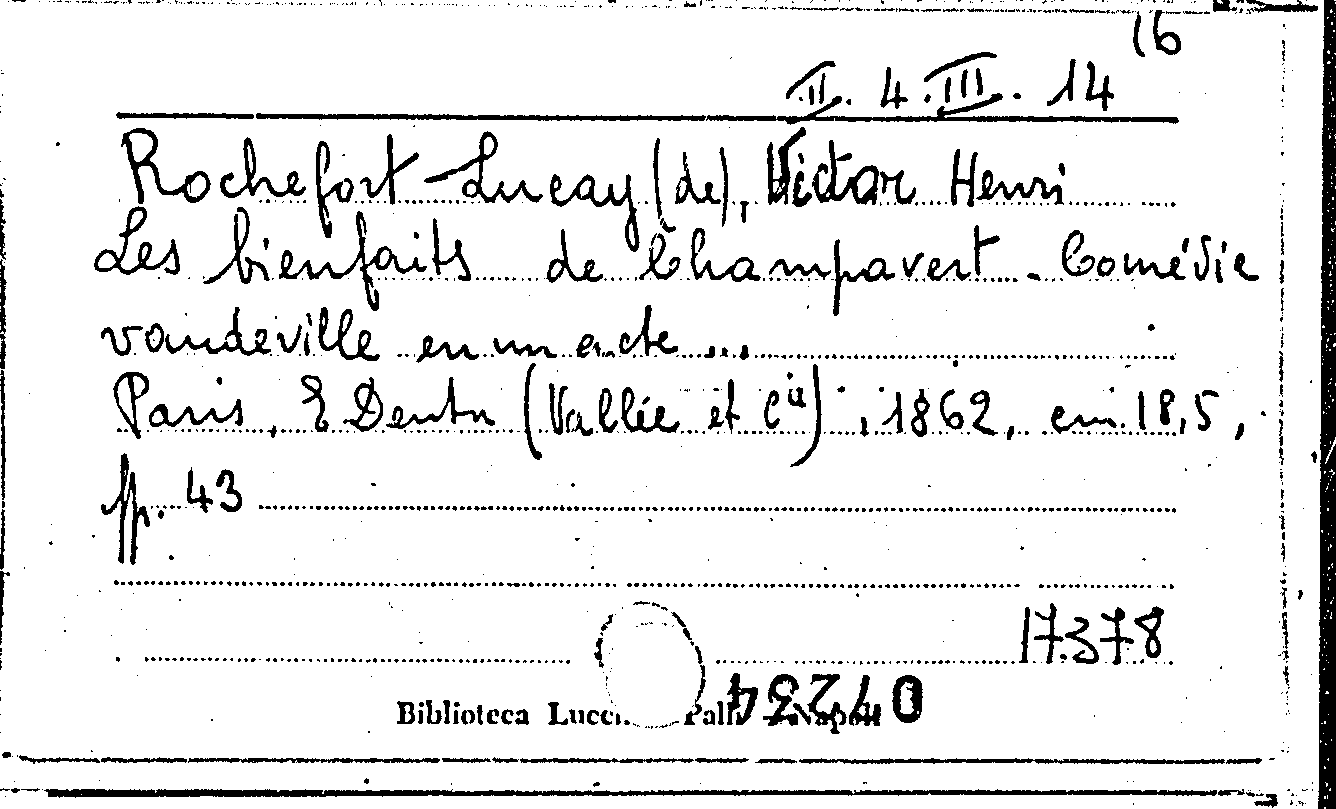 16
II. 4. III. 14
Rochefort-Lucay (de), Victor Henri
Les bienfaits de Champavert - Comédie
vaudeville en un acte ...
Paris, E Dentu (Vallée et Cie), 1862, cm. 18,5,
pp. 43
17378
Biblioteca Pall Napoli